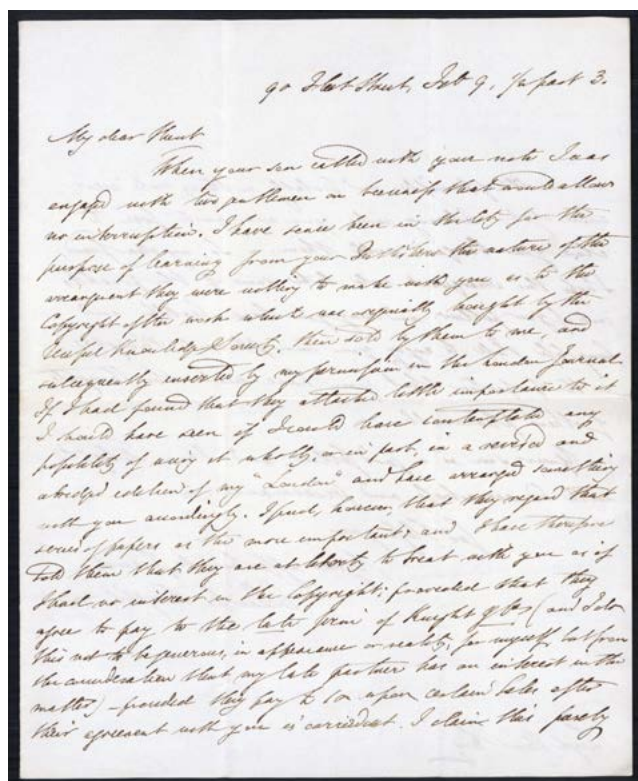 90 Fleet Street, Feb 9, 1/4 past 3.
My dear Hunt
When your son called with your note I was
engaged with two gentlemen on business that would allow
no interruption. I have since been in the City for the
purpose of learning from your Publishers the nature of the
arrangement they were willing to make with you as to the
Copyright of the work which was originally bought by the
Useful Knowledge Society, then sold by them to me, and
subsequently inserted by my permission in the London Journal
If I had found that they attached little importance to it
I should have seen if I could have contemplated any
possibility of using it wholly, or in part, in a revised and
abridged edition of my "London" and have arranged something
with you accordingly. I find, however, that they regard that
series of papers as the more important; and I have therefore
told them that they are at liberty to treat with you as if
I had no interest in the Copyright; provided that they
agree to pay to the late firm of Knight & Co (and I do
this not to be generous, in appearance or reality, for myself, but from
the consideration that my late partner has an interest in the
matter) – provided they pay £10 upon certain sales after
their agreement with you is carried out. I claim this purely